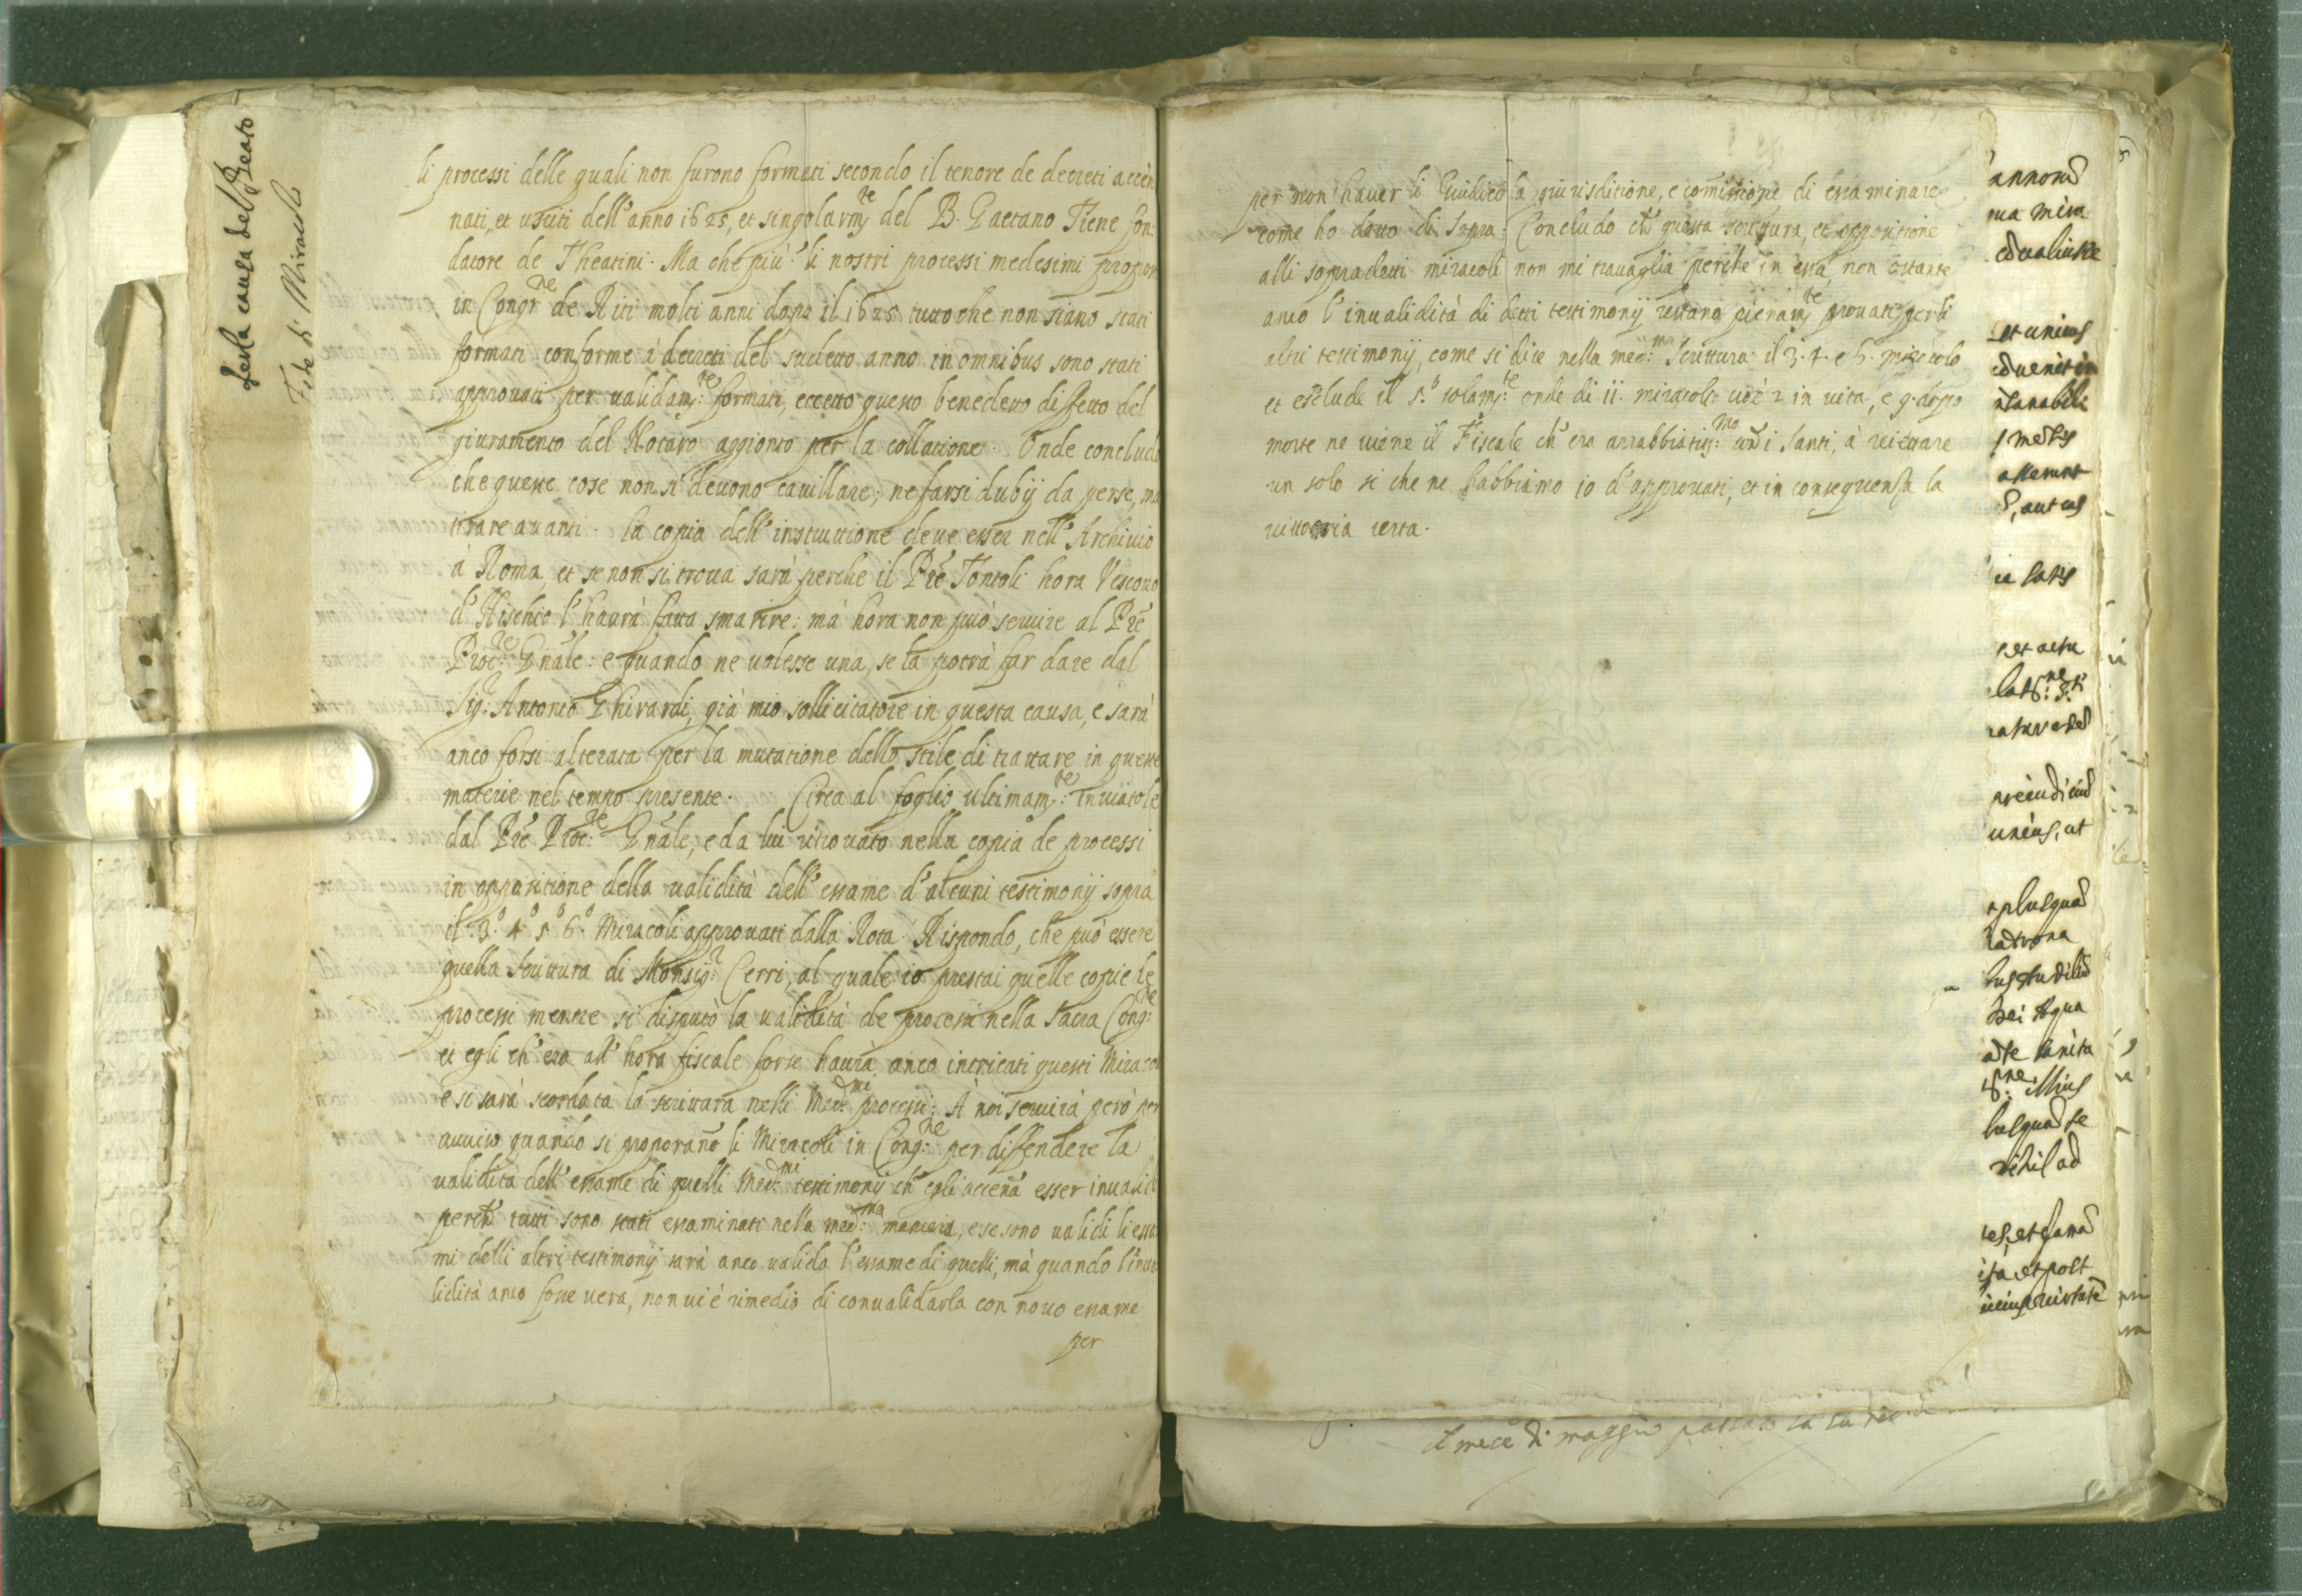 Per la causa del Beato
Fede di Miracolo
li processi delle quali non furono formati secondo il tenore de decreti accen
nati, et usciti dell'anno 1625, et singolarm:te del B. Gaetano Tiene fon:
datore de Theatini. Ma che più? li nostri processi medesimi propos
in Congr:ne de Riti molti anni dopo il 1625 tutto che non siano stati
formati conforme à decreti del sudetto anno in omnibus sono stati
approuati per validam:te formati, eccetto questo benedetto diffetto del
giuramento del Notaro aggionto per la collatione. Onde conclud
che queste cose non si deuono cauillare, ne farsi dubij da perse, ma
tirare auanti. La copia dell'instruttione deue esser nell'Archiuio
à Roma, et se non si troua sarà perche il Prē Tontoli hora Vescouo
d'Hischio l'haurà fatta smarire: mà hora non può seruire al Prē
Proc:re Gnāle: e quando ne volesse una, se la potrà far dare dal
Sig:r Antonio Ghirardi, già mio sollicitatore in questa causa, e sarà
anco forsi alterata per la mutatione dello stile di trattare in queste
materie nel tempo presente. Circa al foglio ultimam:te inuiatole
dal Prē Proc:re Gnāle, e da lui ritrouato nella copia de processi
in oppositione della validità dell'essame d'alcuni testimonij sopra
il 3.o 4.o 5.o 6.o Miracoli approuati dalla Rota. Rispondo, che può essere
quella scrittura di Monsig:r Cerri, al quale io prestai quelle copie de
processi mentre si disputò la validità de processi nella Sacra Cong:ne
et egli ch'era all'hora fiscale forse haurà anco intricati questi Miraco
e si sarà scordata la scrittura nelli Med:mi processi. A noi seruirà però per
auuiso quando si proporañо li Miracoli in Cong:ne per diffendere la
validità dell'essame di quelli Med:mi testimonij ch'egli acceña esser inualid
perchē tutti sono stati essaminati nella med:ma maniera, e se sono validi li essa
mi delli altri testimonij sarà anco valido l'essame di quelli, mà quando l'inua
lidità anco fosse vera, non vi è rimedio di conualidarla con nouo essame
per
per non hauer li Giudici la giurisditione, e comissione di essaminare
come ho detto di sopra. Concludo chē questa scrittura, et oppositione
alli sopradetti miracoli non mi trauaglia perche in essa non ostante
anco l'inualidità di detti testimonij restano pienam:te prouati per li
altri testimonij, come si dice nella med:ma scrittura il 3. 4. e 6. miracolo
et esclude il 5.o solam:te onde di 11. miracoli cioè 2 in vita, e 9. dopo
morte ne viene il Fiscale ch'era arrabbiatiss:mo con i Santi, à reiettare
un solo si che ne habbiamo 10 d'approuati, et in consequenza la
vittoria certa.
et unius
aut eius
et actu
unius, ut
ate sanita
nihil ad
ita, et post
il mese di maggio passato la